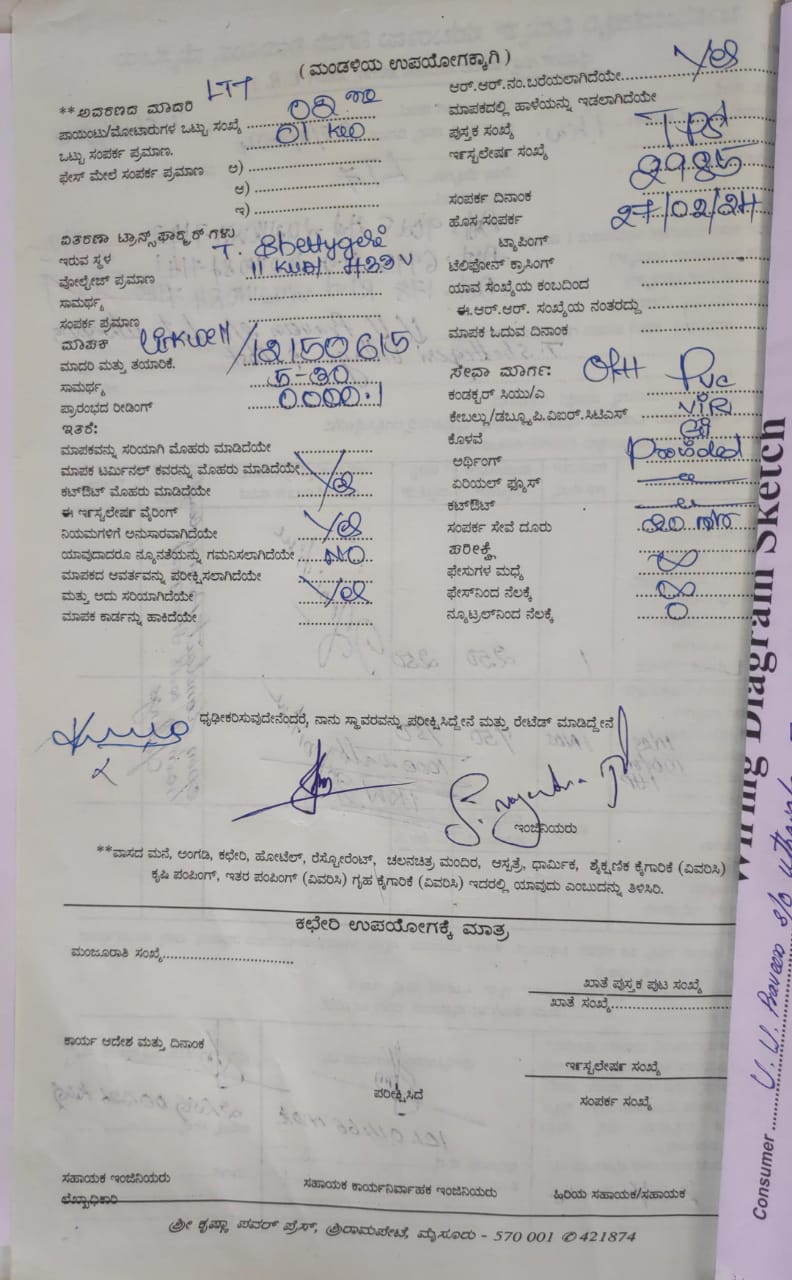 ( ಮಂಡಳಿಯ ಉಪಯೋಗಕ್ಕಾಗಿ )
**ಆವರಣದ ಮಾದರಿ LTT
ಪಾಯಿಂಟು/ಮೋಟಾರುಗಳ ಒಟ್ಟು ಸಂಖ್ಯೆ ............ 02
ಒಟ್ಟು ಸಂಪರ್ಕ ಪ್ರಮಾಣ. ............ 01
ಫೇಸ್ ಮೇಲೆ ಸಂಪರ್ಕ ಪ್ರಮಾಣ ಅ) ............
ಆ) ............
ಇ) ............
ವಿತರಣಾ ಟ್ರಾನ್ಸ್‌ಫಾರ್ಮರ್‌ಗಳು
ಇರುವ ಸ್ಥಳ T. Shettygeri
ವೋಲ್ಟೇಜ್ ಪ್ರಮಾಣ 11 433 V
ಸಾಮರ್ಥ್ಯ ............
ಸಂಪರ್ಕ ಪ್ರಮಾಣ ............
ಮಾಪಕ
ಮಾದರಿ ಮತ್ತು ತಯಾರಿಕೆ. Linkwell / 12150615
ಸಾಮರ್ಥ್ಯ 5-30
ಪ್ರಾರಂಭದ ರೀಡಿಂಗ್ 0000.1
ಇತರೆ:
ಮಾಪಕವನ್ನು ಸರಿಯಾಗಿ ಮೊಹರು ಮಾಡಿದೆಯೇ ............
ಮಾಪಕ ಟರ್ಮಿನಲ್ ಕವರನ್ನು ಮೊಹರು ಮಾಡಿದೆಯೇ............
ಕಟ್‌ಔಟ್ ಮೊಹರು ಮಾಡಿದೆಯೇ Yes
ಈ ಇನ್‌ಸ್ಟಲೇಷನ್ ವೈರಿಂಗ್
ನಿಯಮಗಳಿಗೆ ಅನುಸಾರವಾಗಿದೆಯೇ Yes
ಯಾವುದಾದರೂ ನ್ಯೂನತೆಯನ್ನು ಗಮನಿಸಲಾಗಿದೆಯೇ NO
ಮಾಪಕದ ಆವರ್ತವನ್ನು ಪರೀಕ್ಷಿಸಲಾಗಿದೆಯೇ
ಮತ್ತು ಅದು ಸರಿಯಾಗಿದೆಯೇ Yes
ಮಾಪಕ ಕಾರ್ಡನ್ನು ಹಾಕಿದೆಯೇ ............
ಆರ್.ಆರ್.ನಂ.ಬರೆಯಲಾಗಿದೆಯೇ............ Yes
ಮಾಪಕದಲ್ಲಿ ಹಾಳೆಯನ್ನು ಇಡಲಾಗಿದೆಯೇ
ಪುಸ್ತಕ ಸಂಖ್ಯೆ
ಇನ್‌ಸ್ಟಲೇಷನ್ ಸಂಖ್ಯೆ 2985
ಸಂಪರ್ಕ ದಿನಾಂಕ
ಹೊಸ ಸಂಪರ್ಕ 27/02/24
ಟ್ಯಾಪಿಂಗ್
ಟೆಲಿಫೋನ್ ಕ್ರಾಸಿಂಗ್ ............
ಯಾವ ಸಂಖ್ಯೆಯ ಕಂಬದಿಂದ ............
ಈ.ಆರ್.ಆರ್. ಸಂಖ್ಯೆಯ ನಂತರದ್ದು ............
ಮಾಪಕ ಓದುವ ದಿನಾಂಕ ............
ಸೇವಾ ಮಾರ್ಗ: OH
ಕಂಡಕ್ಟರ್ ಸಿಯು/ಎ PVC
ಕೇಬಲ್ಲು/ಡಬ್ಲ್ಯೂಪಿ.ವಿಐಆರ್.ಸಿಟಿಎಸ್ VIR
ಕೊಳವೆ GI
ಅರ್ಥಿಂಗ್ Provided
ಏರಿಯಲ್ ಫ್ಯೂಸ್
ಕಟ್‌ಔಟ್
ಸಂಪರ್ಕ ಸೇವೆ ದೂರು
ಪರೀಕ್ಷೆ
ಫೇಸುಗಳ ಮಧ್ಯೆ ∞
ಫೇಸ್‌ನಿಂದ ನೆಲಕ್ಕೆ ∞
ನ್ಯೂಟ್ರಲ್‌ನಿಂದ ನೆಲಕ್ಕೆ 0
ಧೃಢೀಕರಿಸುವುದೇನೆಂದರೆ, ನಾನು ಸ್ಥಾವರವನ್ನು ಪರೀಕ್ಷಿಸಿದ್ದೇನೆ ಮತ್ತು ರೇಟೆಡ್ ಮಾಡಿದ್ದೇನೆ
ಇಂಜಿನಿಯರು
**ವಾಸದ ಮನೆ, ಅಂಗಡಿ, ಕಛೇರಿ, ಹೋಟೆಲ್, ರೆಸ್ಟೋರೆಂಟ್, ಚಲನಚಿತ್ರ ಮಂದಿರ, ಆಸ್ಪತ್ರೆ, ಧಾರ್ಮಿಕ, ಶೈಕ್ಷಣಿಕ ಕೈಗಾರಿಕೆ (ವಿವರಿಸಿ)
ಕೃಷಿ ಪಂಪಿಂಗ್, ಇತರ ಪಂಪಿಂಗ್ (ವಿವರಿಸಿ) ಗೃಹ ಕೈಗಾರಿಕೆ (ವಿವರಿಸಿ) ಇದರಲ್ಲಿ ಯಾವುದು ಎಂಬುದನ್ನು ತಿಳಿಸಿರಿ.
ಕಛೇರಿ ಉಪಯೋಗಕ್ಕೆ ಮಾತ್ರ
ಮಂಜೂರಾತಿ ಸಂಖ್ಯೆ............
ಖಾತೆ ಪುಸ್ತಕ ಪುಟ ಸಂಖ್ಯೆ
ಖಾತೆ ಸಂಖ್ಯೆ............
ಕಾರ್ಯ ಆದೇಶ ಮತ್ತು ದಿನಾಂಕ
ಇನ್‌ಸ್ಟಲೇಷನ್ ಸಂಖ್ಯೆ
ಪರೀಕ್ಷಿಸಿದೆ
ಸಂಪರ್ಕ ಸಂಖ್ಯೆ
ಸಹಾಯಕ ಇಂಜಿನಿಯರು ಸಹಾಯಕ ಕಾರ್ಯನಿರ್ವಾಹಕ ಇಂಜಿನಿಯರು ಹಿರಿಯ ಸಹಾಯಕ/ಸಹಾಯಕ
ಲೆಖ್ಖಾಧಿಕಾರಿ
ಶ್ರೀ ಕೃಷ್ಣಾ ಪವರ್ ಪ್ರೆಸ್, ಶ್ರೀರಾಮಪೇಟೆ, ಮೈಸೂರು - 570 001 ✆ 421874
Wiring Diagram Sketch
Consumer ............ U. U. Praveen S/o